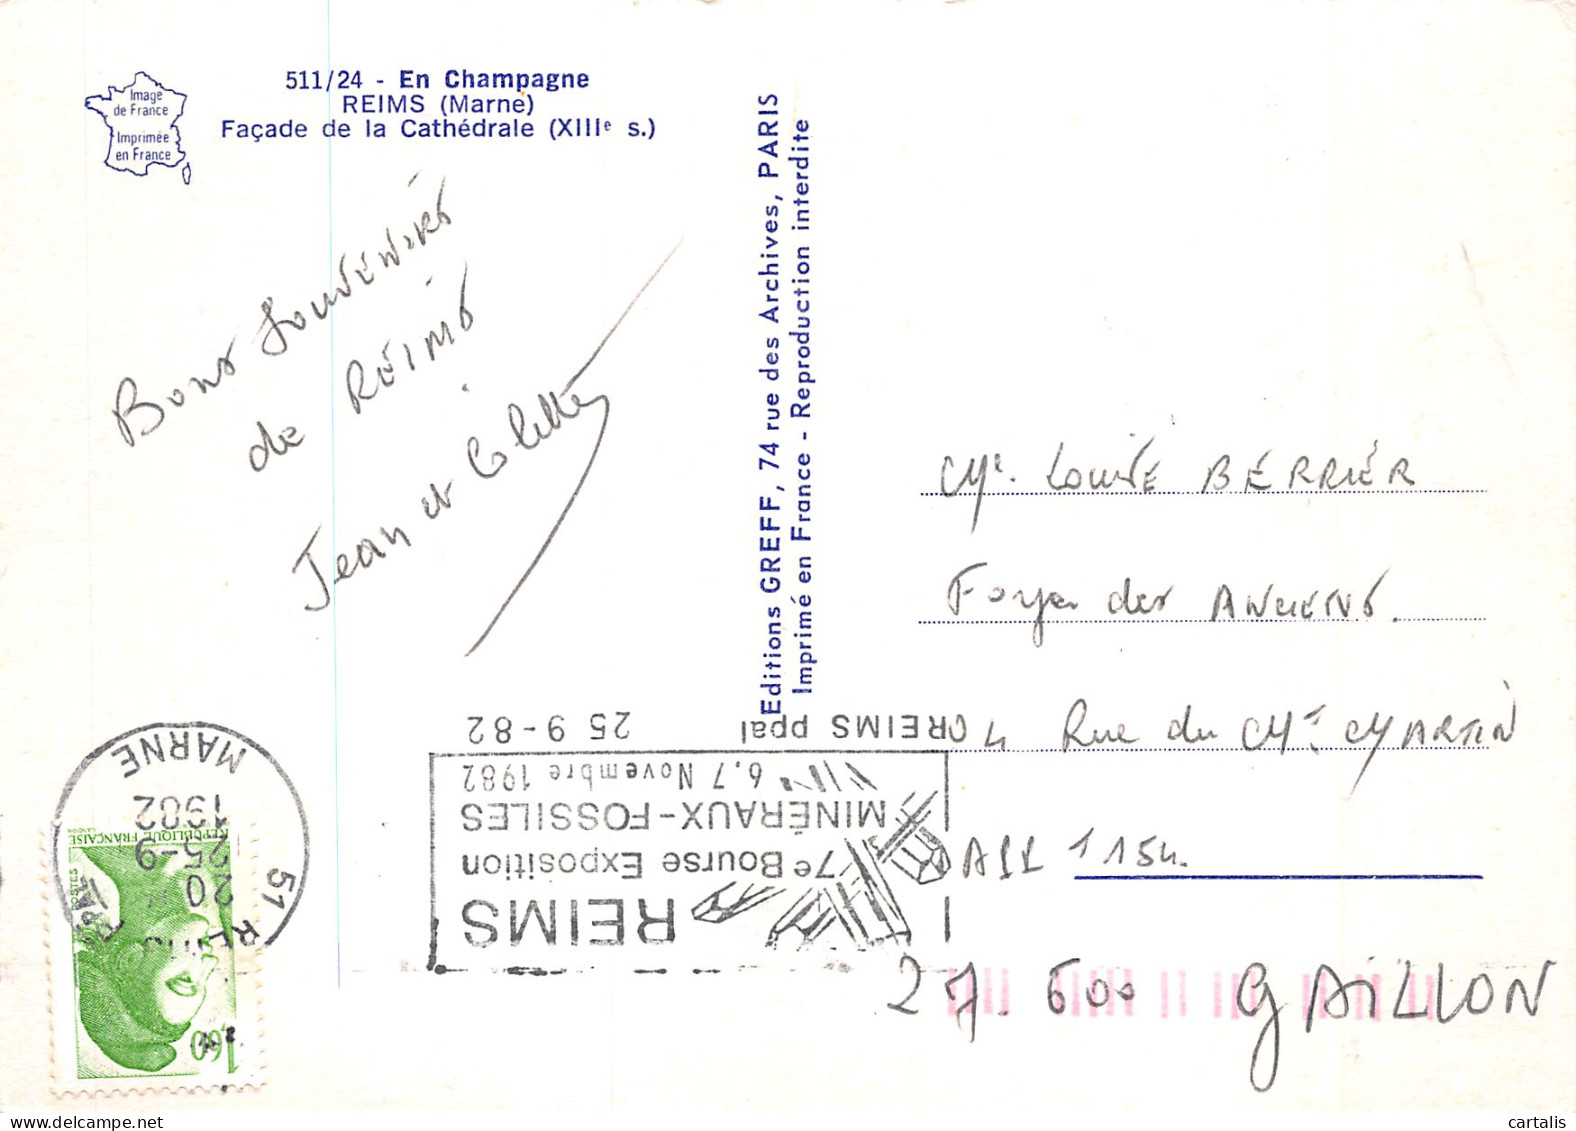 Image
de France
Imprimée
en France
511/24 - En Champagne
REIMS (Marne)
Façade de la Cathédrale (XIIIe s.)
Bons Souvenirs
de REIMS
Jean et Colette
Editions GREFF, 74 rue des Archives, PARIS
Imprimé en France - Reproduction interdite
Me. Louise BERRIER
Foyer des ANCIENS.
4 Rue du Mt. MARTIN
APL 154.
27.600 GAILLON
REIMS
7e Bourse Exposition
MINÉRAUX-FOSSILES
6,7 Novembre 1982
REIMS ppal 25 9-82
51 REIMS PPAL
20
25-9
1982
MARNE
1,60
POSTES
RÉPUBLIQUE FRANÇAISE
GANDON
cartalis